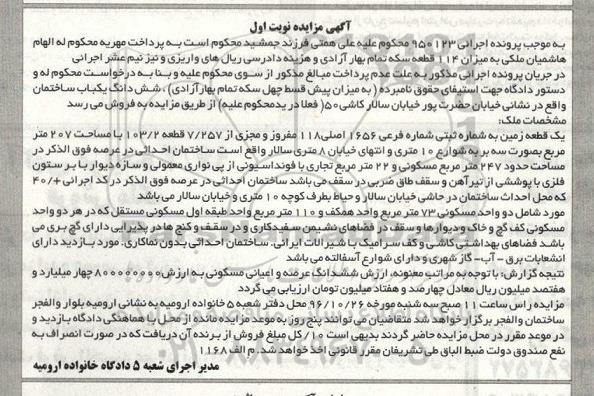 آگهی مزایده نوبت اول
به موجب پرونده اجرائی ۹۵۰۱۲۳ محکوم علیه علی همتی فرزند جمشید محکوم است به پرداخت مهریه محکوم له الهام
هاشمیان ملکی به میزان ۱۱۴ قطعه سکه تمام بهار آزادی و هزینه دادرسی ریال های واریزی و نیز نیم عشر اجرائی
در جریان پرونده اجرائی مذکور به علت عدم پرداخت مبالغ مذکور از سوی محکوم علیه و بنا به درخواست محکوم له و
دستور دادگاه جهت استیفای حقوق نامبرده ( به میزان پیش قسط چهل سکه تمام بهار آزادی) ، شش دانگ یکباب ساختمان
واقع در نشانی خیابان حضرت پور خیابان سالار کاشی ۵۰( فعلا در ید محکوم علیه) از طریق مزایده به فروش می رسد
مشخصات ملک:
یک قطعه زمین به شماره ثبتی شماره فرعی ۱۶۵۶ اصلی ۱۱۸ مفروز و مجزی از ۷/۲۵۷ قطعه ۱۰۳/۲ با مساحت ۲۰۷ متر
مربع بصورت سه بر به شوارع ۱۰ متری و انتهای خیابان ۸ متری سالار واقع است ساختمان احداثی در عرصه فوق الذکر در
مساحت حدود ۲۴۷ متر مربع مسکونی و ۲۲ متر مربع تجاری با فونداسیونی از پی نواری معمولی و سازه دیوار با بر ستون
فلزی با پوششی از تیر آهن و سقف طاق ضربی در سقف می باشد ساختمان احداثی در عرصه فوق الذکر در کد اجرائی +۴۰/
که محل احداث ساختمان در حاشی خیابان سالار و حیاط بطرف کوچه ۱۰ متری و خیابان سالار می باشد
مورد شامل دو واحد مسکونی ۷۳ متر مربع واحد همکف و ۱۱۰ متر مربع واحد طبقه اول مسکونی مستقل که در هر دو واحد
مسکونی کف گچ و خاک و دیوارها و سقف در فضاهای نشیمن سفیدکاری و در سقف و کنج ها در پذیرایی دارای گچ بری می
باشد فضاهای بهداشتی کاشی و کف سرامیک با شیرالات ایرانی. ساختمان احداثی بدون نماکاری. مورد بازدید دارای
انشعابات برق – آب- گاز شهری و دارای شوارع آسفالته می باشد
نتیجه گزارش: با توجه به مراتب معنونه، ارزش ششدانگ عرصه و اعیانی مسکونی به ارزش چهار میلیارد و
هفتصد میلیون ریال معادل چهارصد و هفتاد میلیون تومان ارزیابی می گردد
مزایده راس ساعت ۱۱ صبح سه شنبه مورخه ۹۶/۱۰/۲۶ محل دفتر شعبه ۵ خانواده ارومیه به نشانی ارومیه بلوار والفجر
ساختمان والفجر برگزار خواهد شد متقاضیان می توانند پنج روز به موعد مزایده مانده از محل با هماهنگی دادگاه بازدید و
در موعد مقرر در محل مزایده حاضر گردند بدیهی است ۱۰٪ کل مبلغ فروش از برنده آن دریافت که در صورت انصراف به
نفع صندوق دولت ضبط الباق طی تشریفان مقرر قانونی اخذ خواهد شد. م الف ۱۱۶۸
مدیر اجرای شعبه ۵ دادگاه خانواده ارومیه